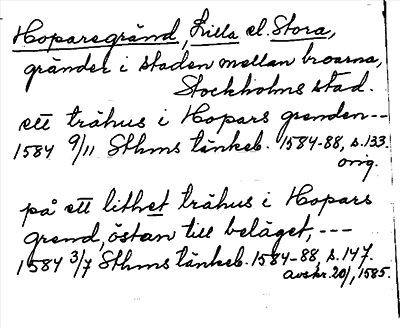 Hoparegränd, Lilla el. Stora,
gränder i staden mellan broarna,
Stockholms stad.
ett trähus i Hopars grenden --
1584 9/11 Sthms tänkeb. 1584-88, s. 133.
orig.
på ett lithet trähus i Hopars
grend, östan till beläget, ---
1584 3/7 Sthms tänkeb. 1584-88, s. 147.
avskr. 20/1, 1585.